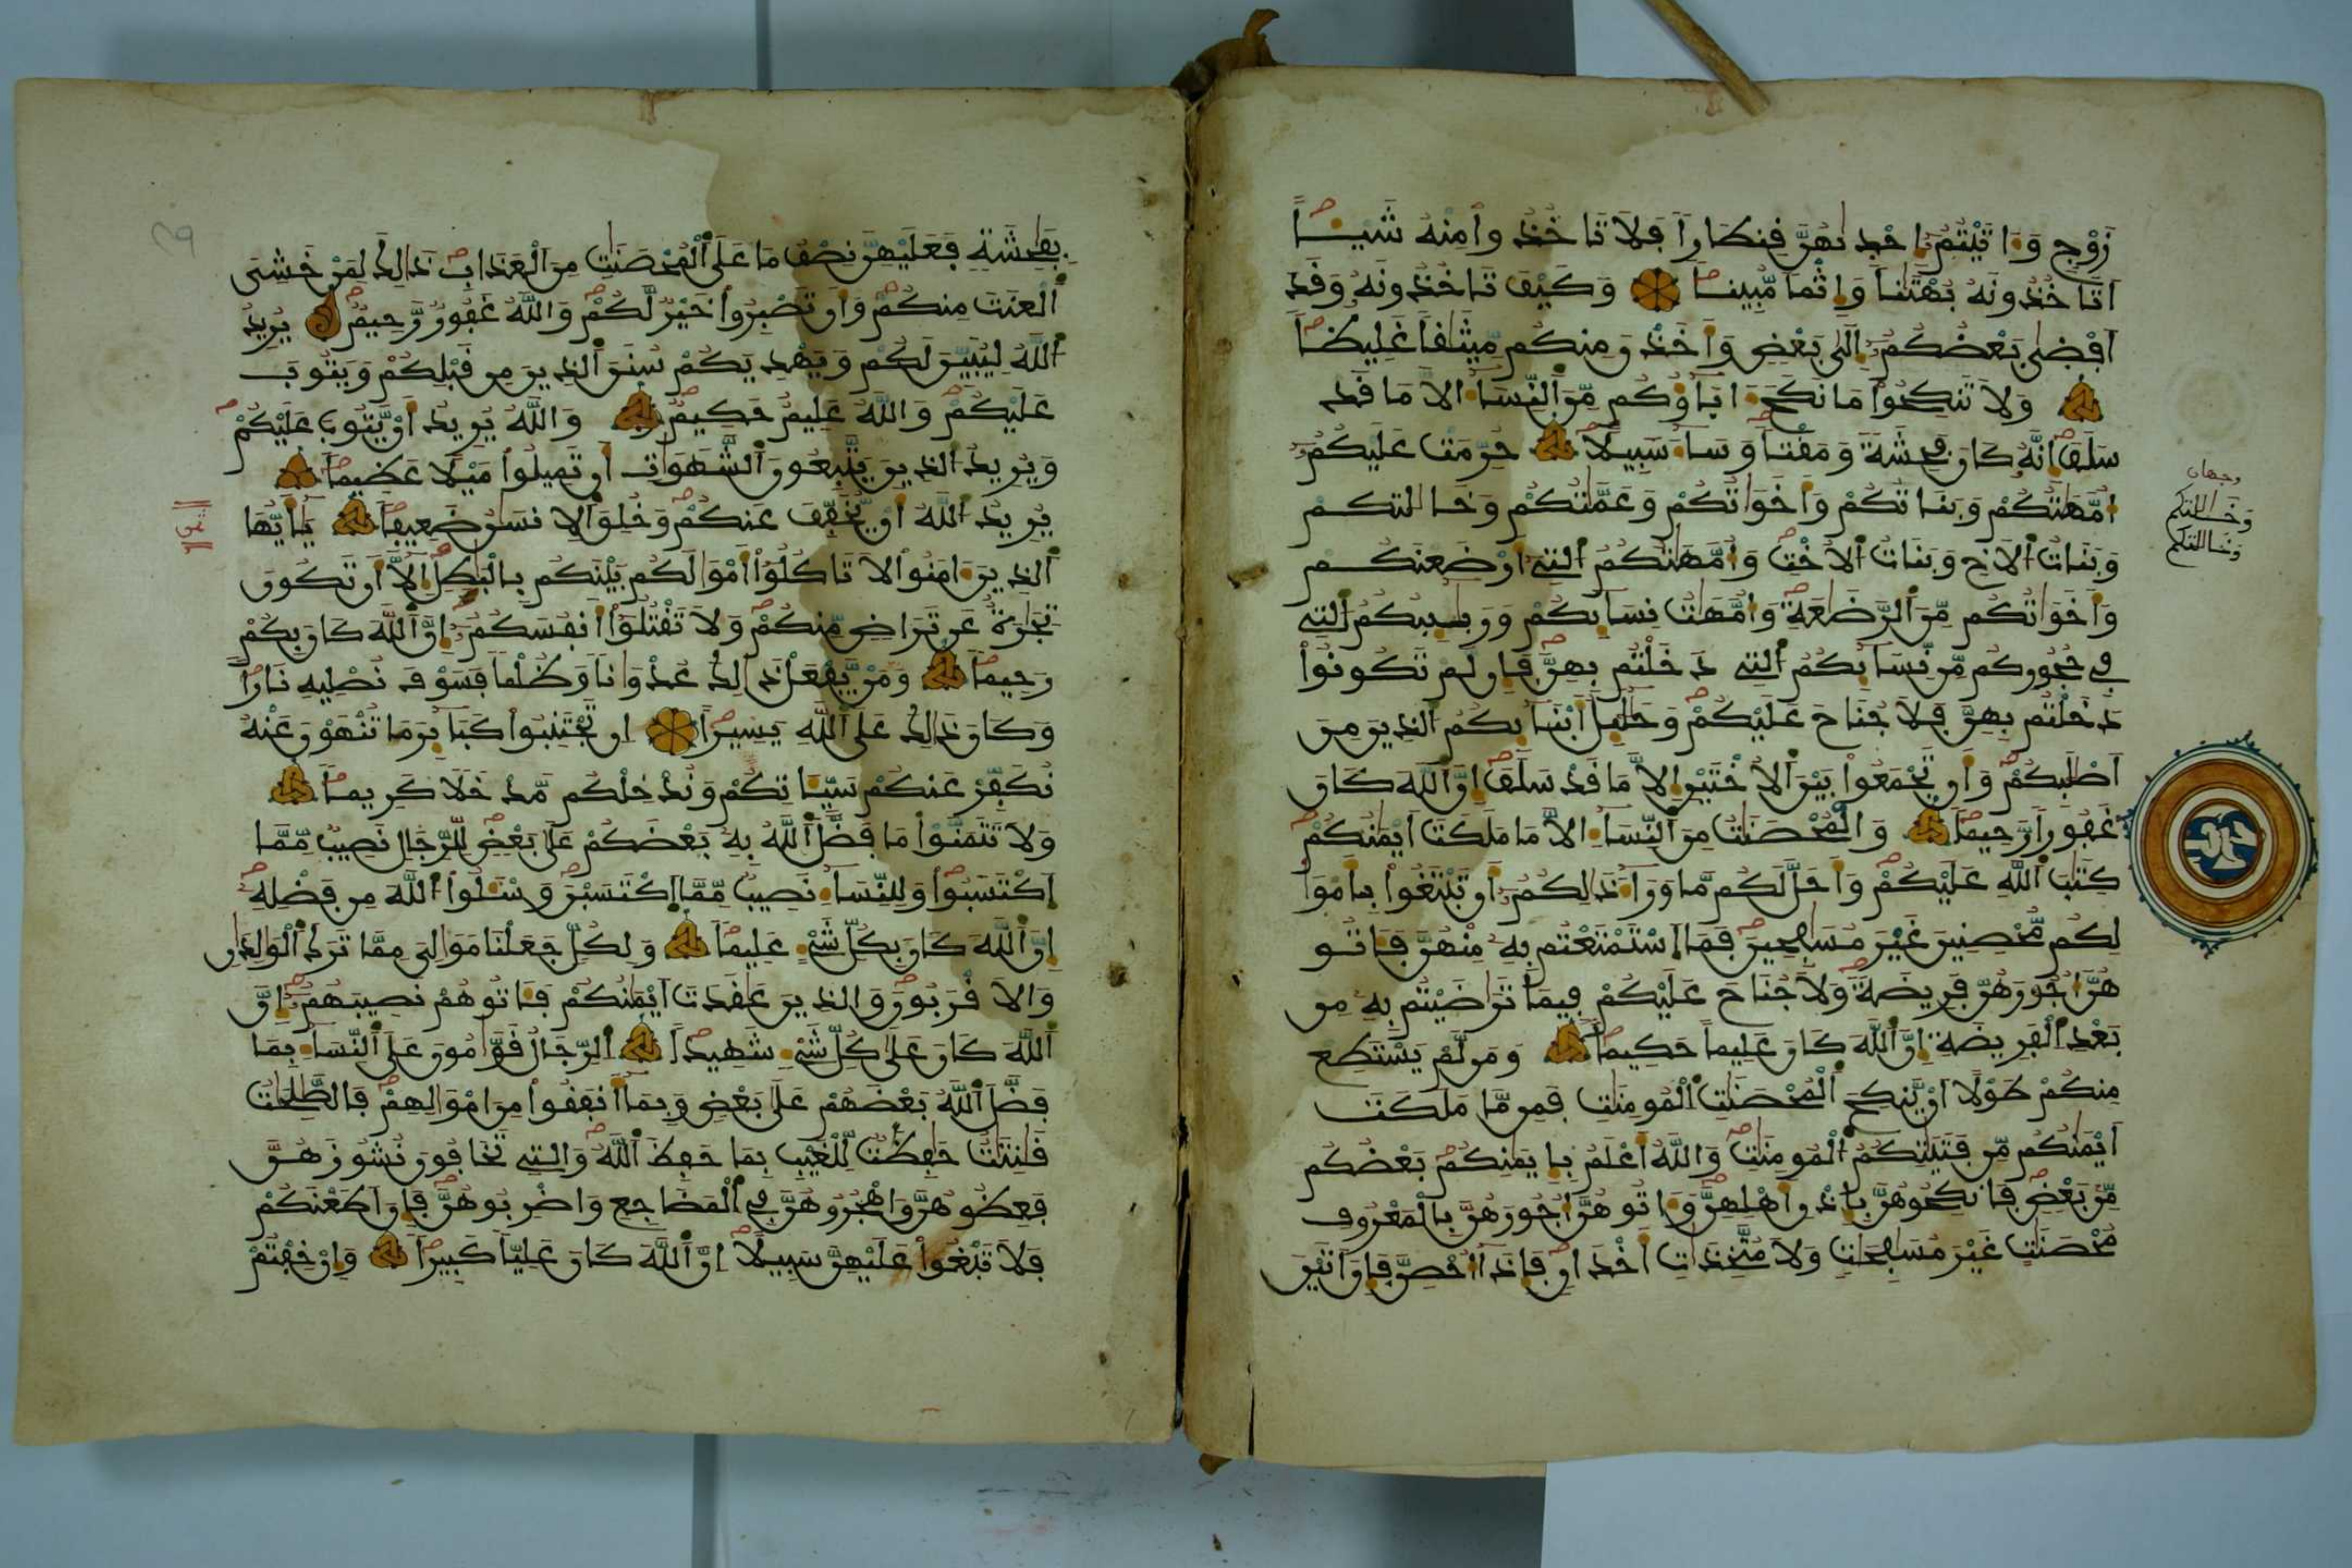 زَوْجٍ وَءَاتَيْتُمُ إِحْدَىٰهُنَّ قِنطَاراً فَلَا تَاخُذُواْ مِنْهُ شَيْـًٔا
اَتَاخُذُونَهُ بُهْتَٰناً وَإِثْماً مُّبِيناً وَكَيْفَ تَاخُذُونَهُ وَقَدَ
اَفْضَىٰ بَعْضُكُمُ إِلَىٰ بَعْضٍ وَأَخَذْنَ مِنكُم مِّيثَٰقاً غَلِيظاً
وَلَا تَنكِحُواْ مَا نَكَحَ ءَابَآؤُكُم مِّنَ اَ۬لنِّسَآءِ الَّا مَا قَد
سَلَفَ إِنَّهُ كَانَ فَٰحِشَةً وَمَقْتاً وَسَآءَ سَبِيلًا حُرِّمَتْ عَلَيْكُمُ
أُمَّهَٰتُكُمْ وَبَنَاتُكُمْ وَأَخَوَاتُكُمْ وَعَمَّٰتُكُمْ وَخَالَٰتُكُمْ
وَبَنَاتُ اُ۬لَاخِ وَبَنَاتُ اُ۬لُاخْتِ وَأُمَّهَٰتُكُمُ اُ۬لتِے أَرْضَعْنَكُمْ
وَأَخَوَاتُكُم مِّنَ اَ۬لرَّضَٰعَةِ وَأُمَّهَٰتُ نِسَآئِكُمْ وَرَبَٰٓئِبُكُمُ اُ۬لتِے
فِے حُجُورِكُم مِّن نِّسَآئِكُمُ اُ۬لتِے دَخَلْتُم بِهِنَّ فَإِن لَّمْ تَكُونُواْ
دَخَلْتُم بِهِنَّ فَلَا جُنَاحَ عَلَيْكُمْ وَحَلَٰٓئِلُ أَبْنَآئِكُمُ اُ۬لذِينَ مِنَ
اَصْلَٰبِكُمْ وَأَن تَجْمَعُواْ بَيْنَ اَ۬لُاخْتَيْنِ إِلَّا مَا قَدْ سَلَفَ إِنَّ اَ۬للَّهَ كَانَ
غَفُوراً رَّحِيماً وَالْمُحْصَنَٰتُ مِنَ اَ۬لنِّسَآءِ الَّا مَا مَلَكَتَ اَيْمَٰنُكُمْ
كِتَٰبَ اَ۬للَّهِ عَلَيْكُمْ وَأَحَلَّ لَكُم مَّا وَرَآءَ ذَٰلِكُمُ أَن تَبْتَغُواْ بِأَمْوَا
لِكُم مُّحْصِنِينَ غَيْرَ مُسَٰفِحِينَ فَمَا اَ۪سْتَمْتَعْتُم بِهِ مِنْهُنَّ فَـَٔاتُو
هُنَّ أُجُورَهُنَّ فَرِيضَةً وَلَا جُنَاحَ عَلَيْكُمْ فِيمَا تَرَٰضَيْتُم بِهِ مِن
بَعْدِ اِ۬لْفَرِيضَةِ إِنَّ اَ۬للَّهَ كَانَ عَلِيماً حَكِيماً وَمَن لَّمْ يَسْتَطِعْ
مِنكُمْ طَوْلًا اَنْ يَّنكِحَ اَ۬لْمُحْصَنَٰتِ اِ۬لْمُومِنَٰتِ فَمِن مَّا مَلَكَتَ
اَيْمَٰنُكُم مِّن فَتَيَٰتِكُمُ اُ۬لْمُومِنَٰتِ وَاللَّهُ أَعْلَمُ بِإِيمَٰنِكُم بَعْضُكُم
مِّنۢ بَعْضٍ فَانكِحُوهُنَّ بِإِذْنِ أَهْلِهِنَّ وَءَاتُوهُنَّ أُجُورَهُنَّ بِالْمَعْرُوفِ
مُحْصَنَٰتٍ غَيْرَ مُسَٰفِحَٰتٍ وَلَا مُتَّخِذَٰتِ أَخْدَانٍ فَإِذَآ أُحْصِنَّ فَإِنَ اَتَيْنَ
وجهان
وَخَالَٰتكم
وَخَالَٰتكم
بِفَٰحِشَةٍ فَعَلَيْهِنَّ نِصْفُ مَا عَلَى اَ۬لْمُحْصَنَٰتِ مِنَ اَ۬لْعَذَابِ ذَٰلِكَ لِمَنْ خَشِىَ
اَ۬لْعَنَتَ مِنكُمْ وَأَن تَصْبِرُواْ خَيْرٌ لَّكُمْ وَاللَّهُ غَفُورٌ رَّحِيمٌ يُرِيدُ
اُ۬للَّهُ لِيُبَيِّنَ لَكُمْ وَيَهْدِيَكُمْ سُنَنَ اَ۬لذِينَ مِن قَبْلِكُمْ وَيَتُوبَ
عَلَيْكُمْ وَاللَّهُ عَلِيمٌ حَكِيمٌ وَاللَّهُ يُرِيدُ أَنْ يَّتُوبَ عَلَيْكُمْ
وَيُرِيدُ اُ۬لذِينَ يَتَّبِعُونَ اَ۬لشَّهَوَٰتِ أَن تَمِيلُواْ مَيْلًا عَظِيماً
يُرِيدُ اُ۬للَّهُ أَنْ يُّخَفِّفَ عَنكُمْ وَخُلِقَ اَ۬لِانسَٰنُ ضَعِيفاً يَٰٓأَيُّهَا
ثمن
اَ۬لذِينَ ءَامَنُواْ لَا تَاكُلُوٓاْ أَمْوَٰلَكُم بَيْنَكُم بِالْبَٰطِلِ إِلَّآ أَن تَكُونَ
تِجَٰرَةٌ عَن تَرَاضٍ مِّنكُمْ وَلَا تَقْتُلُوٓاْ أَنفُسَكُمُ إِنَّ اَ۬للَّهَ كَانَ بِكُمْ
رَحِيماً وَمَنْ يَّفْعَلْ ذَٰلِكَ عُدْوَٰناً وَظُلْماً فَسَوْفَ نُصْلِيهِ نَاراً
وَكَانَ ذَٰلِكَ عَلَى اَ۬للَّهِ يَسِيراً اِن تَجْتَنِبُواْ كَبَآئِرَ مَا تُنْهَوْنَ عَنْهُ
نُكَفِّرْ عَنكُمْ سَيِّـَٔاتِكُمْ وَنُدْخِلْكُم مَّدْخَلًا كَرِيماً
وَلَا تَتَمَنَّوْاْ مَا فَضَّلَ اَ۬للَّهُ بِهِ بَعْضَكُمْ عَلَىٰ بَعْضٍ لِّلرِّجَالِ نَصِيبٌ مِّمَّا
اَ۪كْتَسَبُواْ وَلِلنِّسَآءِ نَصِيبٌ مِّمَّا اَ۪كْتَسَبْنَ وَسْـَٔلُواْ اُ۬للَّهَ مِن فَضْلِهِ
إِنَّ اَ۬للَّهَ كَانَ بِكُلِّ شَےْءٍ عَلِيماً وَلِكُلٍّ جَعَلْنَا مَوَٰلِىَ مِمَّا تَرَكَ اَ۬لْوَٰلِدَٰنِ
وَالَاقْرَبُونَ وَالذِينَ عَٰقَدَتَ اَيْمَٰنُكُمْ فَـَٔاتُوهُمْ نَصِيبَهُمُ إِنَّ
اَ۬للَّهَ كَانَ عَلَىٰ كُلِّ شَےْءٍ شَهِيداً اَ۬لرِّجَالُ قَوَّٰمُونَ عَلَى اَ۬لنِّسَآءِ بِمَا
فَضَّلَ اَ۬للَّهُ بَعْضَهُمْ عَلَىٰ بَعْضٍ وَبِمَآ أَنفَقُواْ مِنَ اَمْوَٰلِهِمْ فَالصَّٰلِحَٰتُ
قَٰنِتَٰتٌ حَٰفِظَٰتٌ لِّلْغَيْبِ بِمَا حَفِظَ اَ۬للَّهُ وَالتِے تَخَافُونَ نُشُوزَهُنَّ
فَعِظُوهُنَّ وَاهْجُرُوهُنَّ فِے اِ۬لْمَضَاجِعِ وَاضْرِبُوهُنَّ فَإِنَ اَطَعْنَكُمْ
فَلَا تَبْغُواْ عَلَيْهِنَّ سَبِيلًا اِنَّ اَ۬للَّهَ كَانَ عَلِيّاً كَبِيراً وَإِنْ خِفْتُمْ